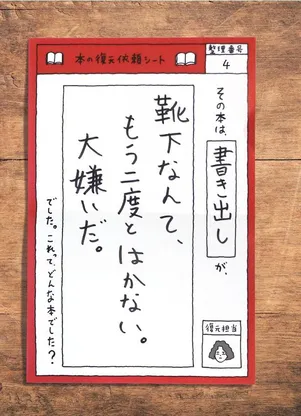 本の復元依頼シート
整理番号
4
その本は、
書き出し
が、
靴下なんて、
もう二度とはかない。
大嫌いだ。
でした。これって、どんな本でした?
復元担当